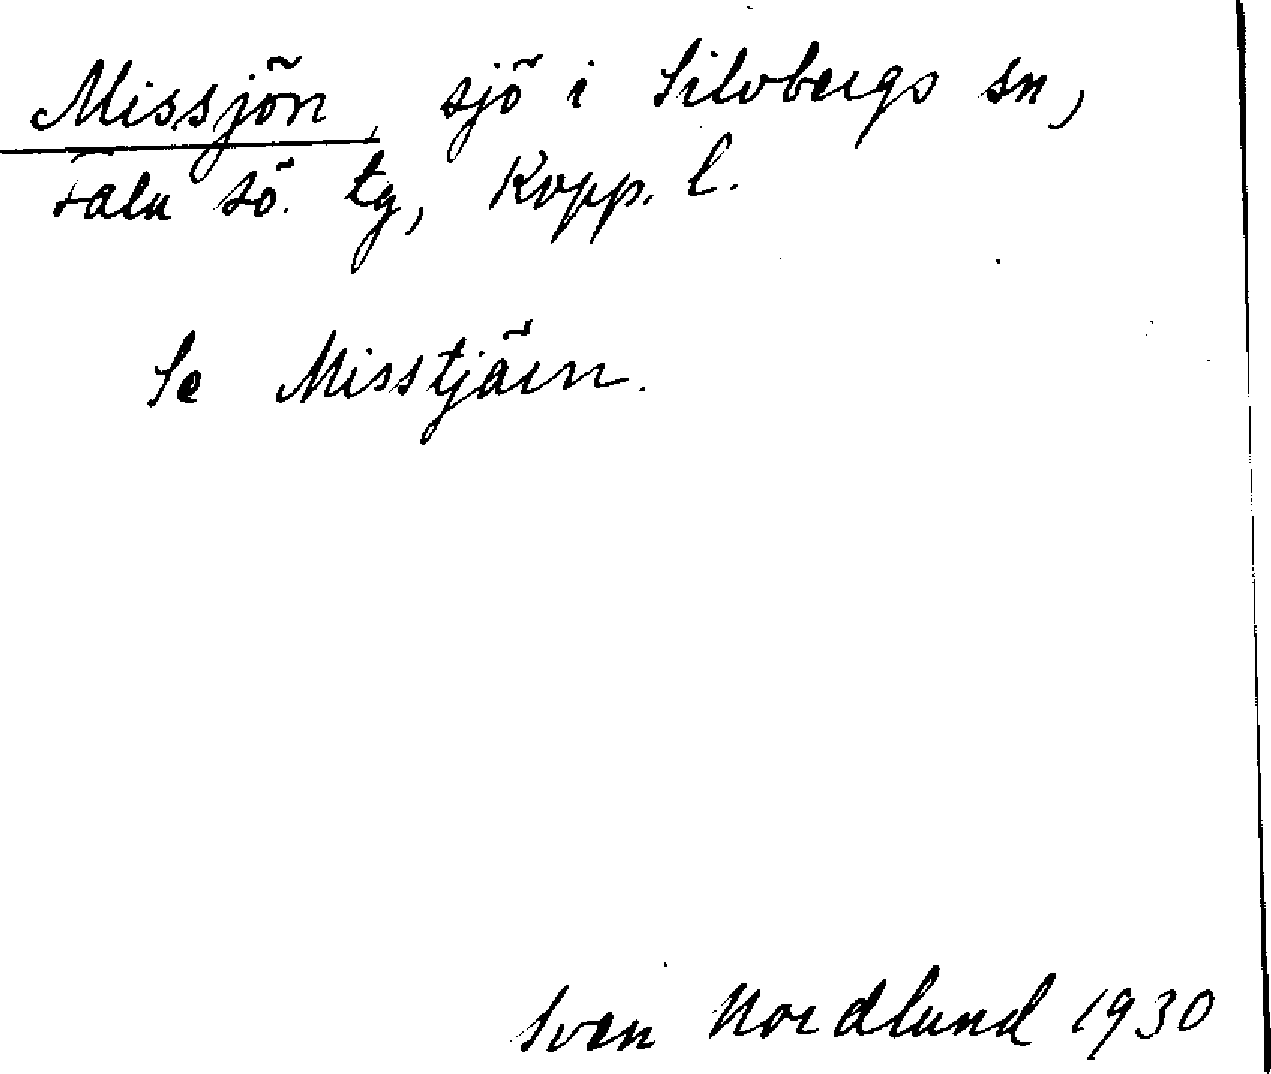 Missjön, sjö i Silvbergs sn,
Falu sö. tg, Kopp. l.
Se Misstjärn.
Sven Nordlund 1930